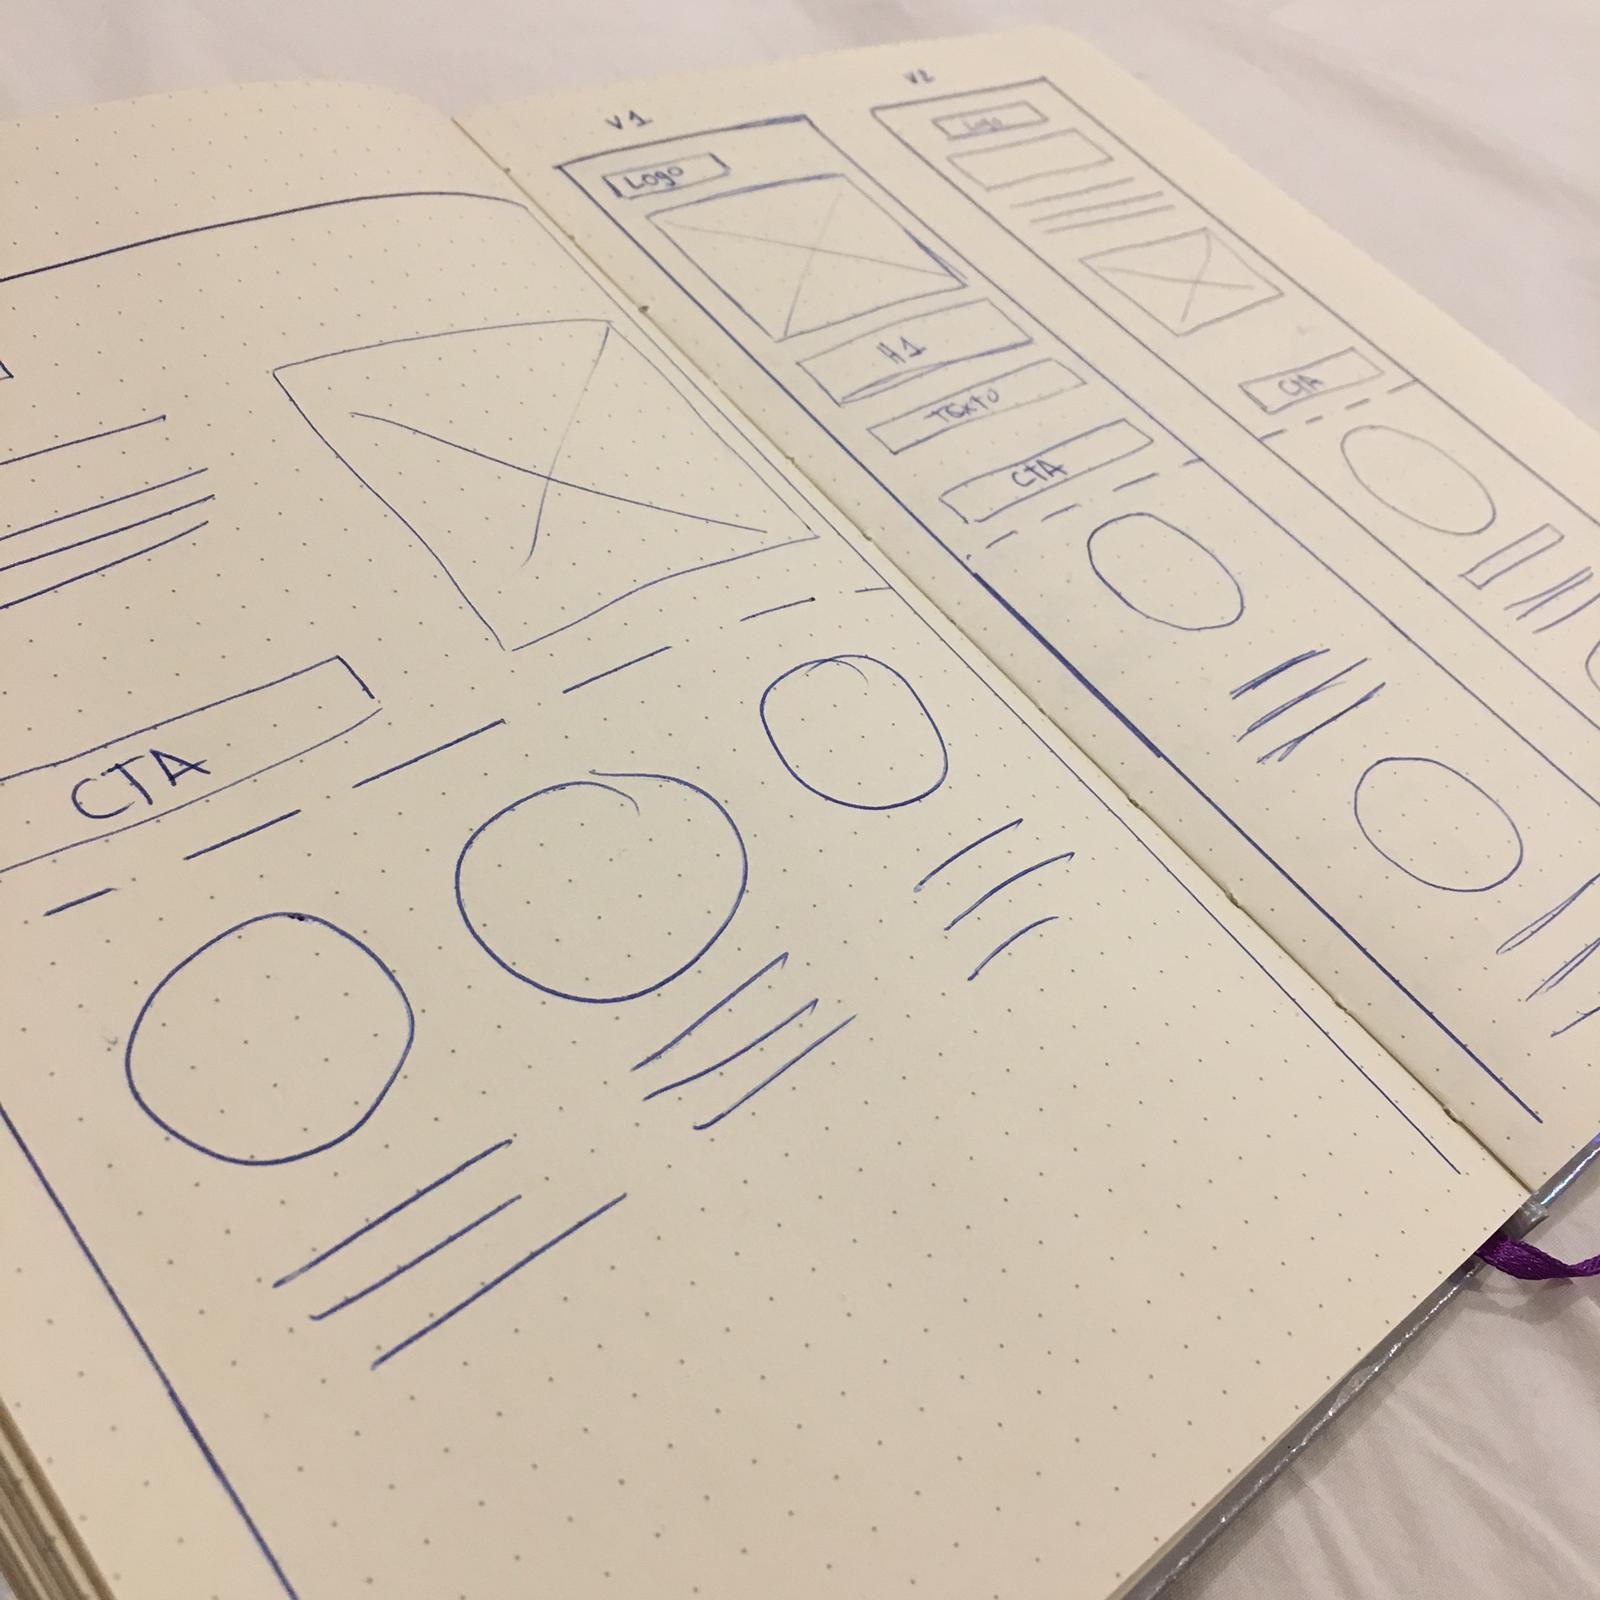 CTA
V1
Logo
H1
Texto
CTA
V2
Logo
CTA